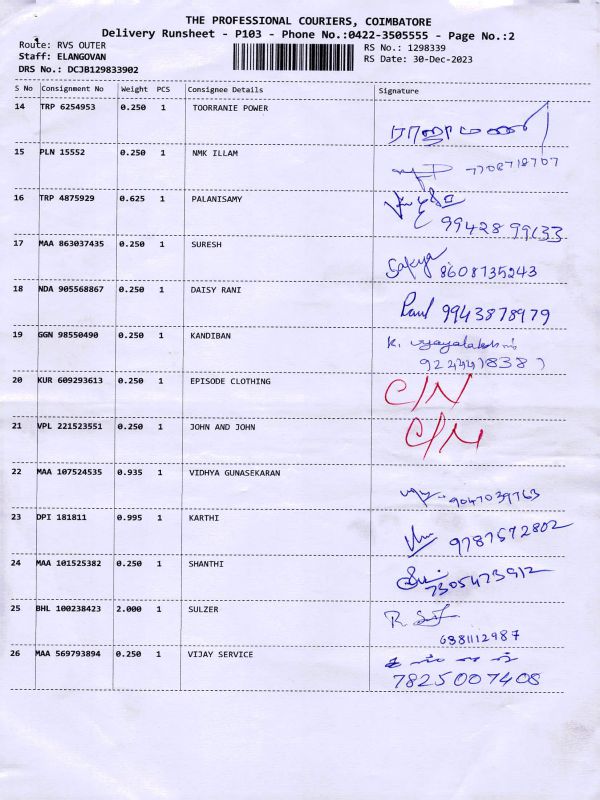 THE PROFESSIONAL COURIERS, COIMBATORE
Delivery Runsheet - P103 - Phone No.:0422-3505555 - Page No.:2
Route: RVS OUTER RS No.: 1298339
Staff: ELANGOVAN RS Date: 30-Dec-2023
DRS No.: DCJB129833902
S No Consignment No Weight PCS Consignee Details Signature
14 TRP 6254953 0.250 1 TOORRANIE POWER
15 PLN 15552 0.250 1 NMK ILLAM 7708718707
16 TRP 4875929 0.625 1 PALANISAMY
99428 99633
17 MAA 863037435 0.250 1 SURESH
Sakya 8608735243
18 NDA 905568867 0.250 1 DAISY RANI
Paul 9943878979
19 GGN 98550490 0.250 1 KANDIBAN K. vijayalakshmi
20 KUR 609293613 0.250 1 EPISODE CLOTHING C/N
21 VPL 221523551 0.250 1 JOHN AND JOHN C/N
22 MAA 107524535 0.935 1 VIDHYA GUNASEKARAN
9047039763
23 DPI 181811 0.995 1 KARTHI
9787572802
24 MAA 101525382 0.250 1 SHANTHI
7305473912
25 BHL 100238423 2.000 1 SULZER
6381112987
26 MAA 569793894 0.250 1 VIJAY SERVICE
7825007408